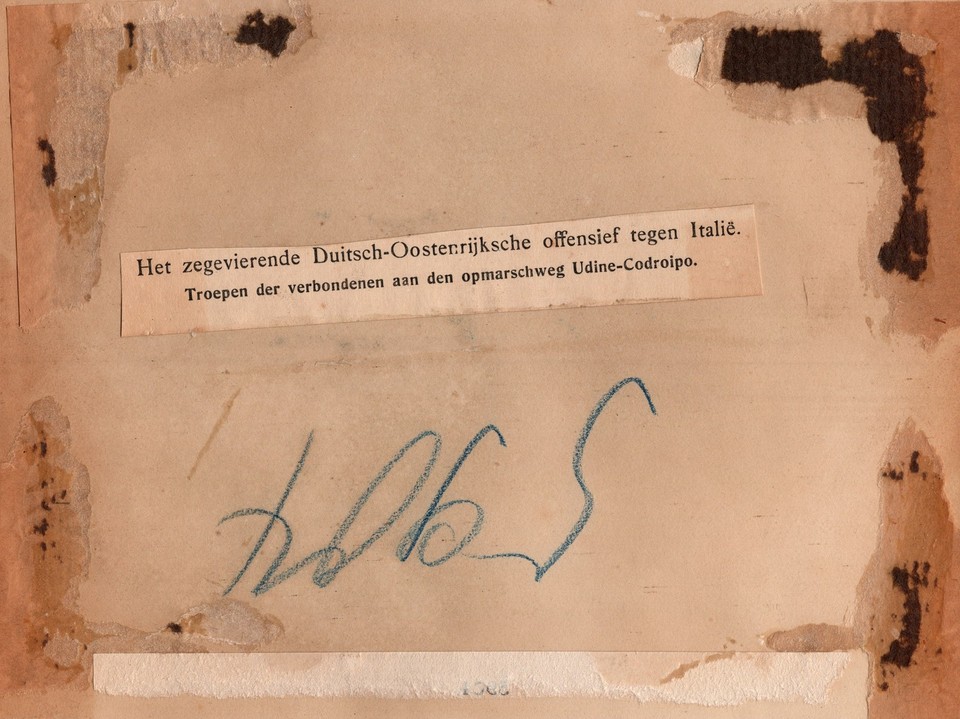 Het zegevierende Duitsch-Oostenrijksche offensief tegen Italië.
Troepen der verbondenen aan den opmarschweg Udine-Codroipo.